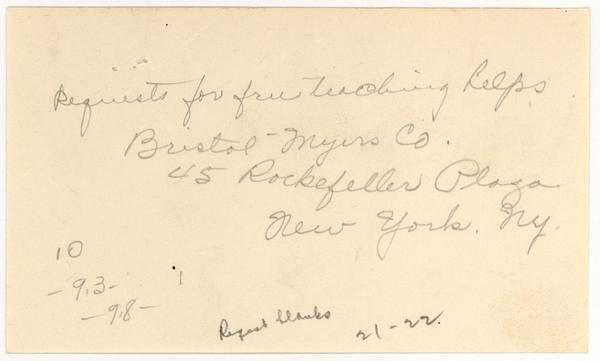 Requests for free teaching helps
Bristol-Myers Co.
45 Rockefeller Plaza
New York, Ny.
10
-93-
-98-
Request blanks 21-22.